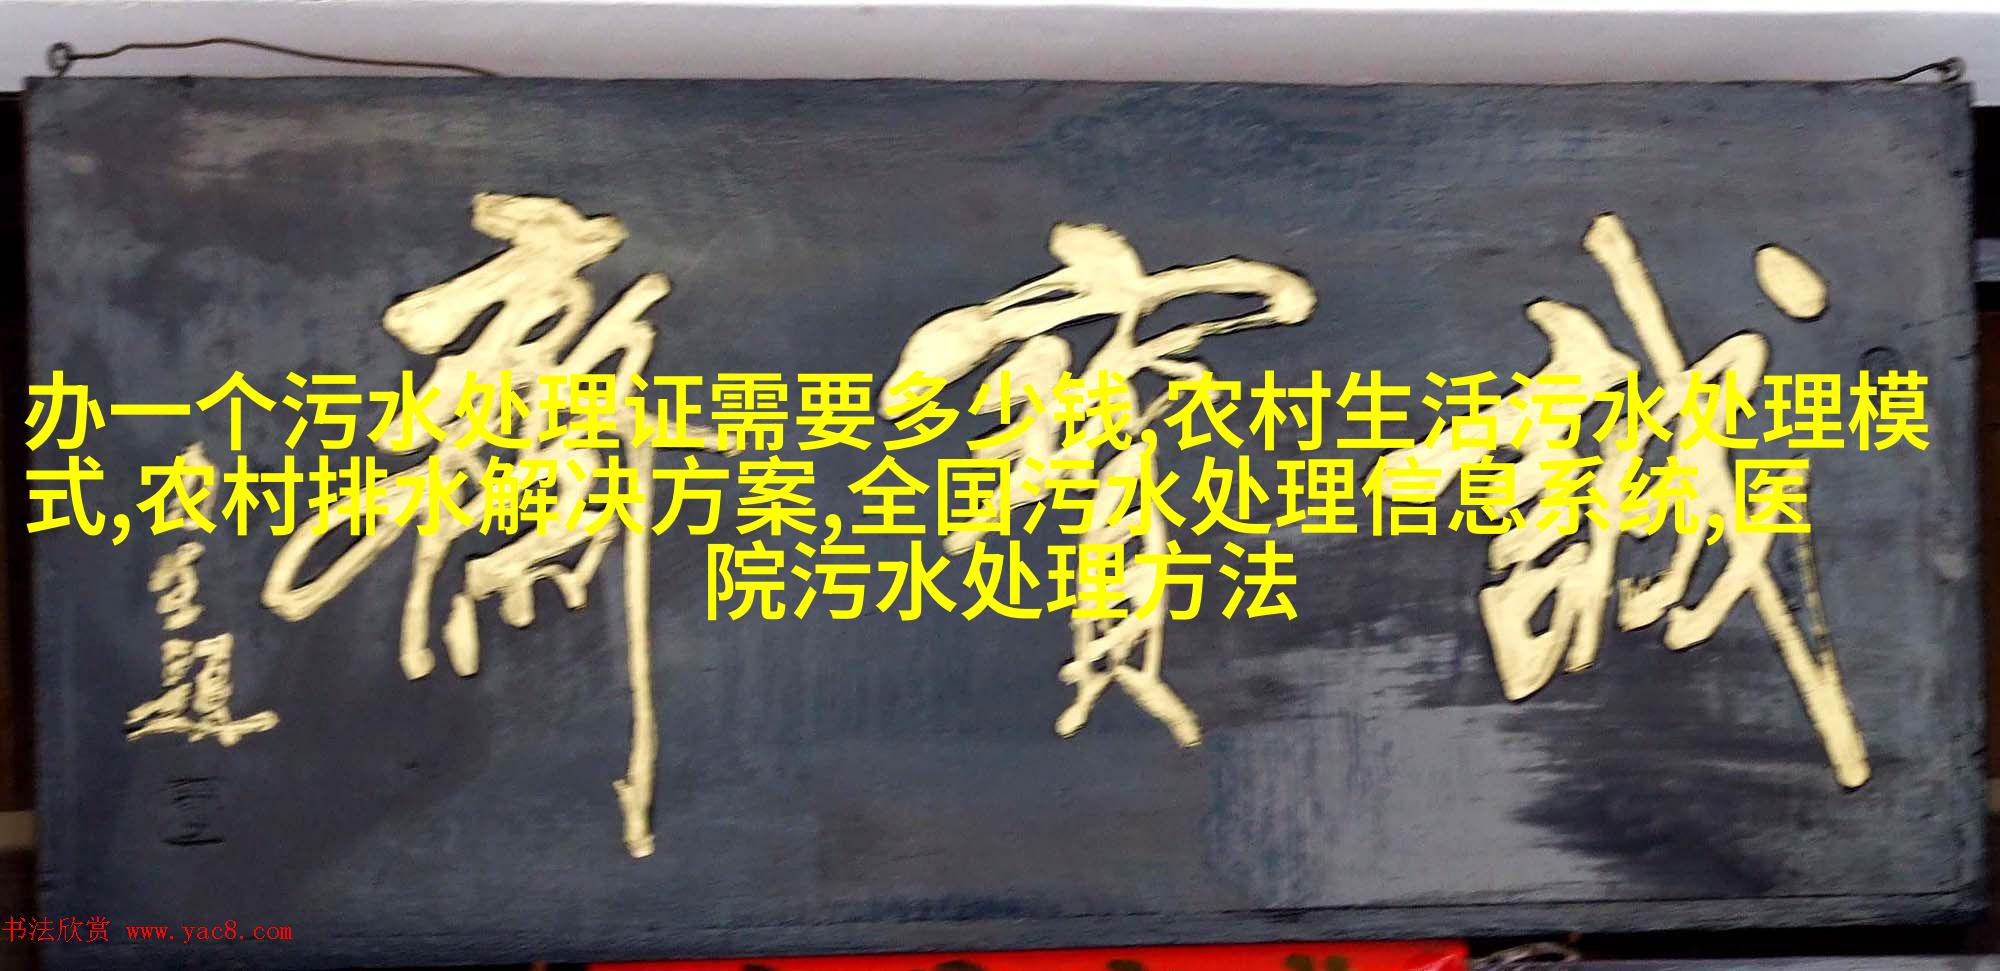 誠寶齋
生題
办一个污水处理证需要多少钱,农村生活污水处理模
式,农村排水解决方案,全国污水处理信息系统,医
院污水处理方法
书法欣赏 www.yac8.com